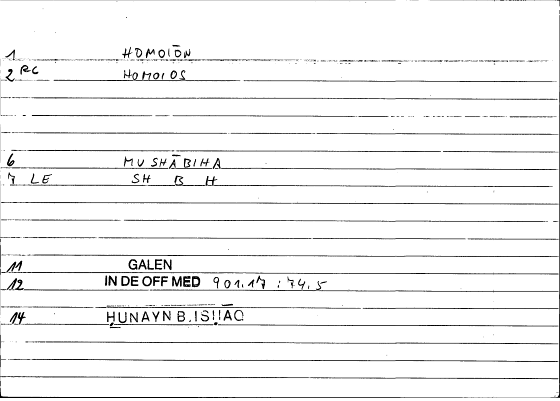 1 HOMOIŌN
2 RC HOMOIOS
6 MUSHĀBIHA
7 LE SH B H
11 GALEN
12 IN DE OFF MED 901.17 : 74.5
14 ḤUNAYN B. ISḤĀQ